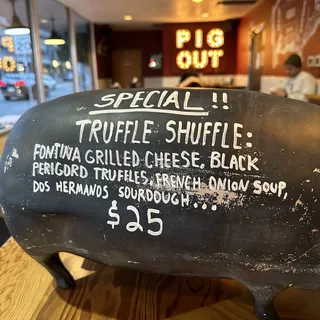 PIG
OUT
SPECIAL!!
TRUFFLE SHUFFLE:
FONTINA GRILLED CHEESE, BLACK
PERIGORD TRUFFLES, FRENCH ONION SOUP,
DOS HERMANOS SOURDOUGH...
$25